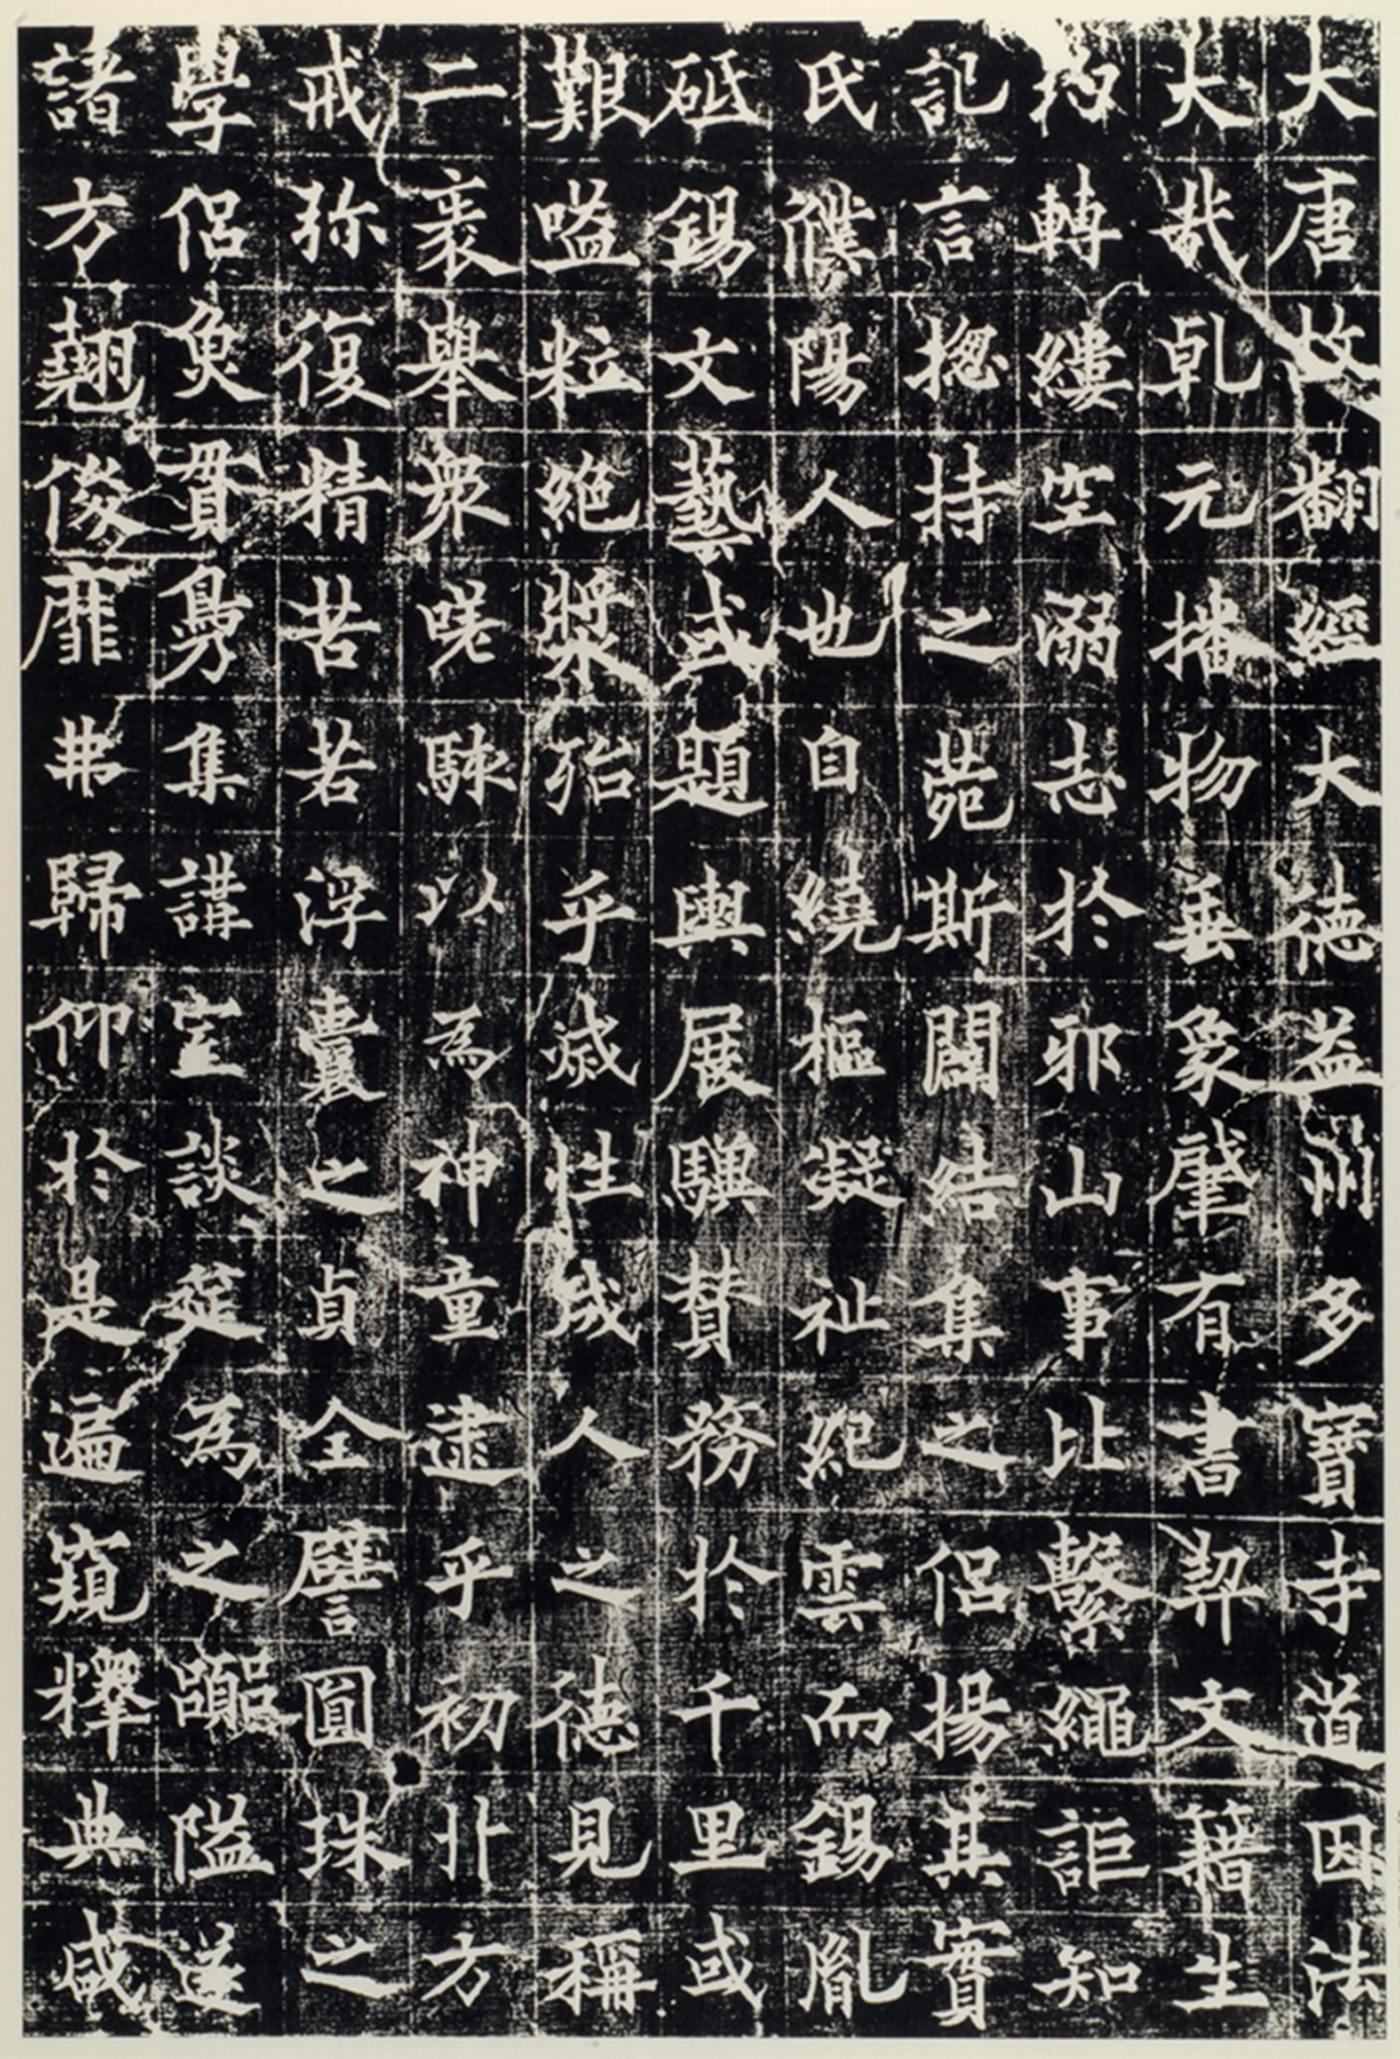 大唐故翻經大德益州多寶寺道因法
大哉乹元播物垂象肈有書契文籍生
均轉縷空溺志於邪山事比繫繩詎知
記言揔持之菀斯闢結集之侶揚其實
氏濮陽人也自繞樞凝祉紀雲而錫胤
砥錫文藝或題輿展驥賛務於千里或
艱嗌粒絶漿殆乎㓕性成人之德見稱
二袠舉衆嗟駭以為神童逮乎初丱方
戒弥復精苦若浮囊之貞全譬圎珠之
學侶奐貫鳧集講室談筵為之囂隘逬
諸方翹俊靡弗歸仰於是遍窺釋典咸